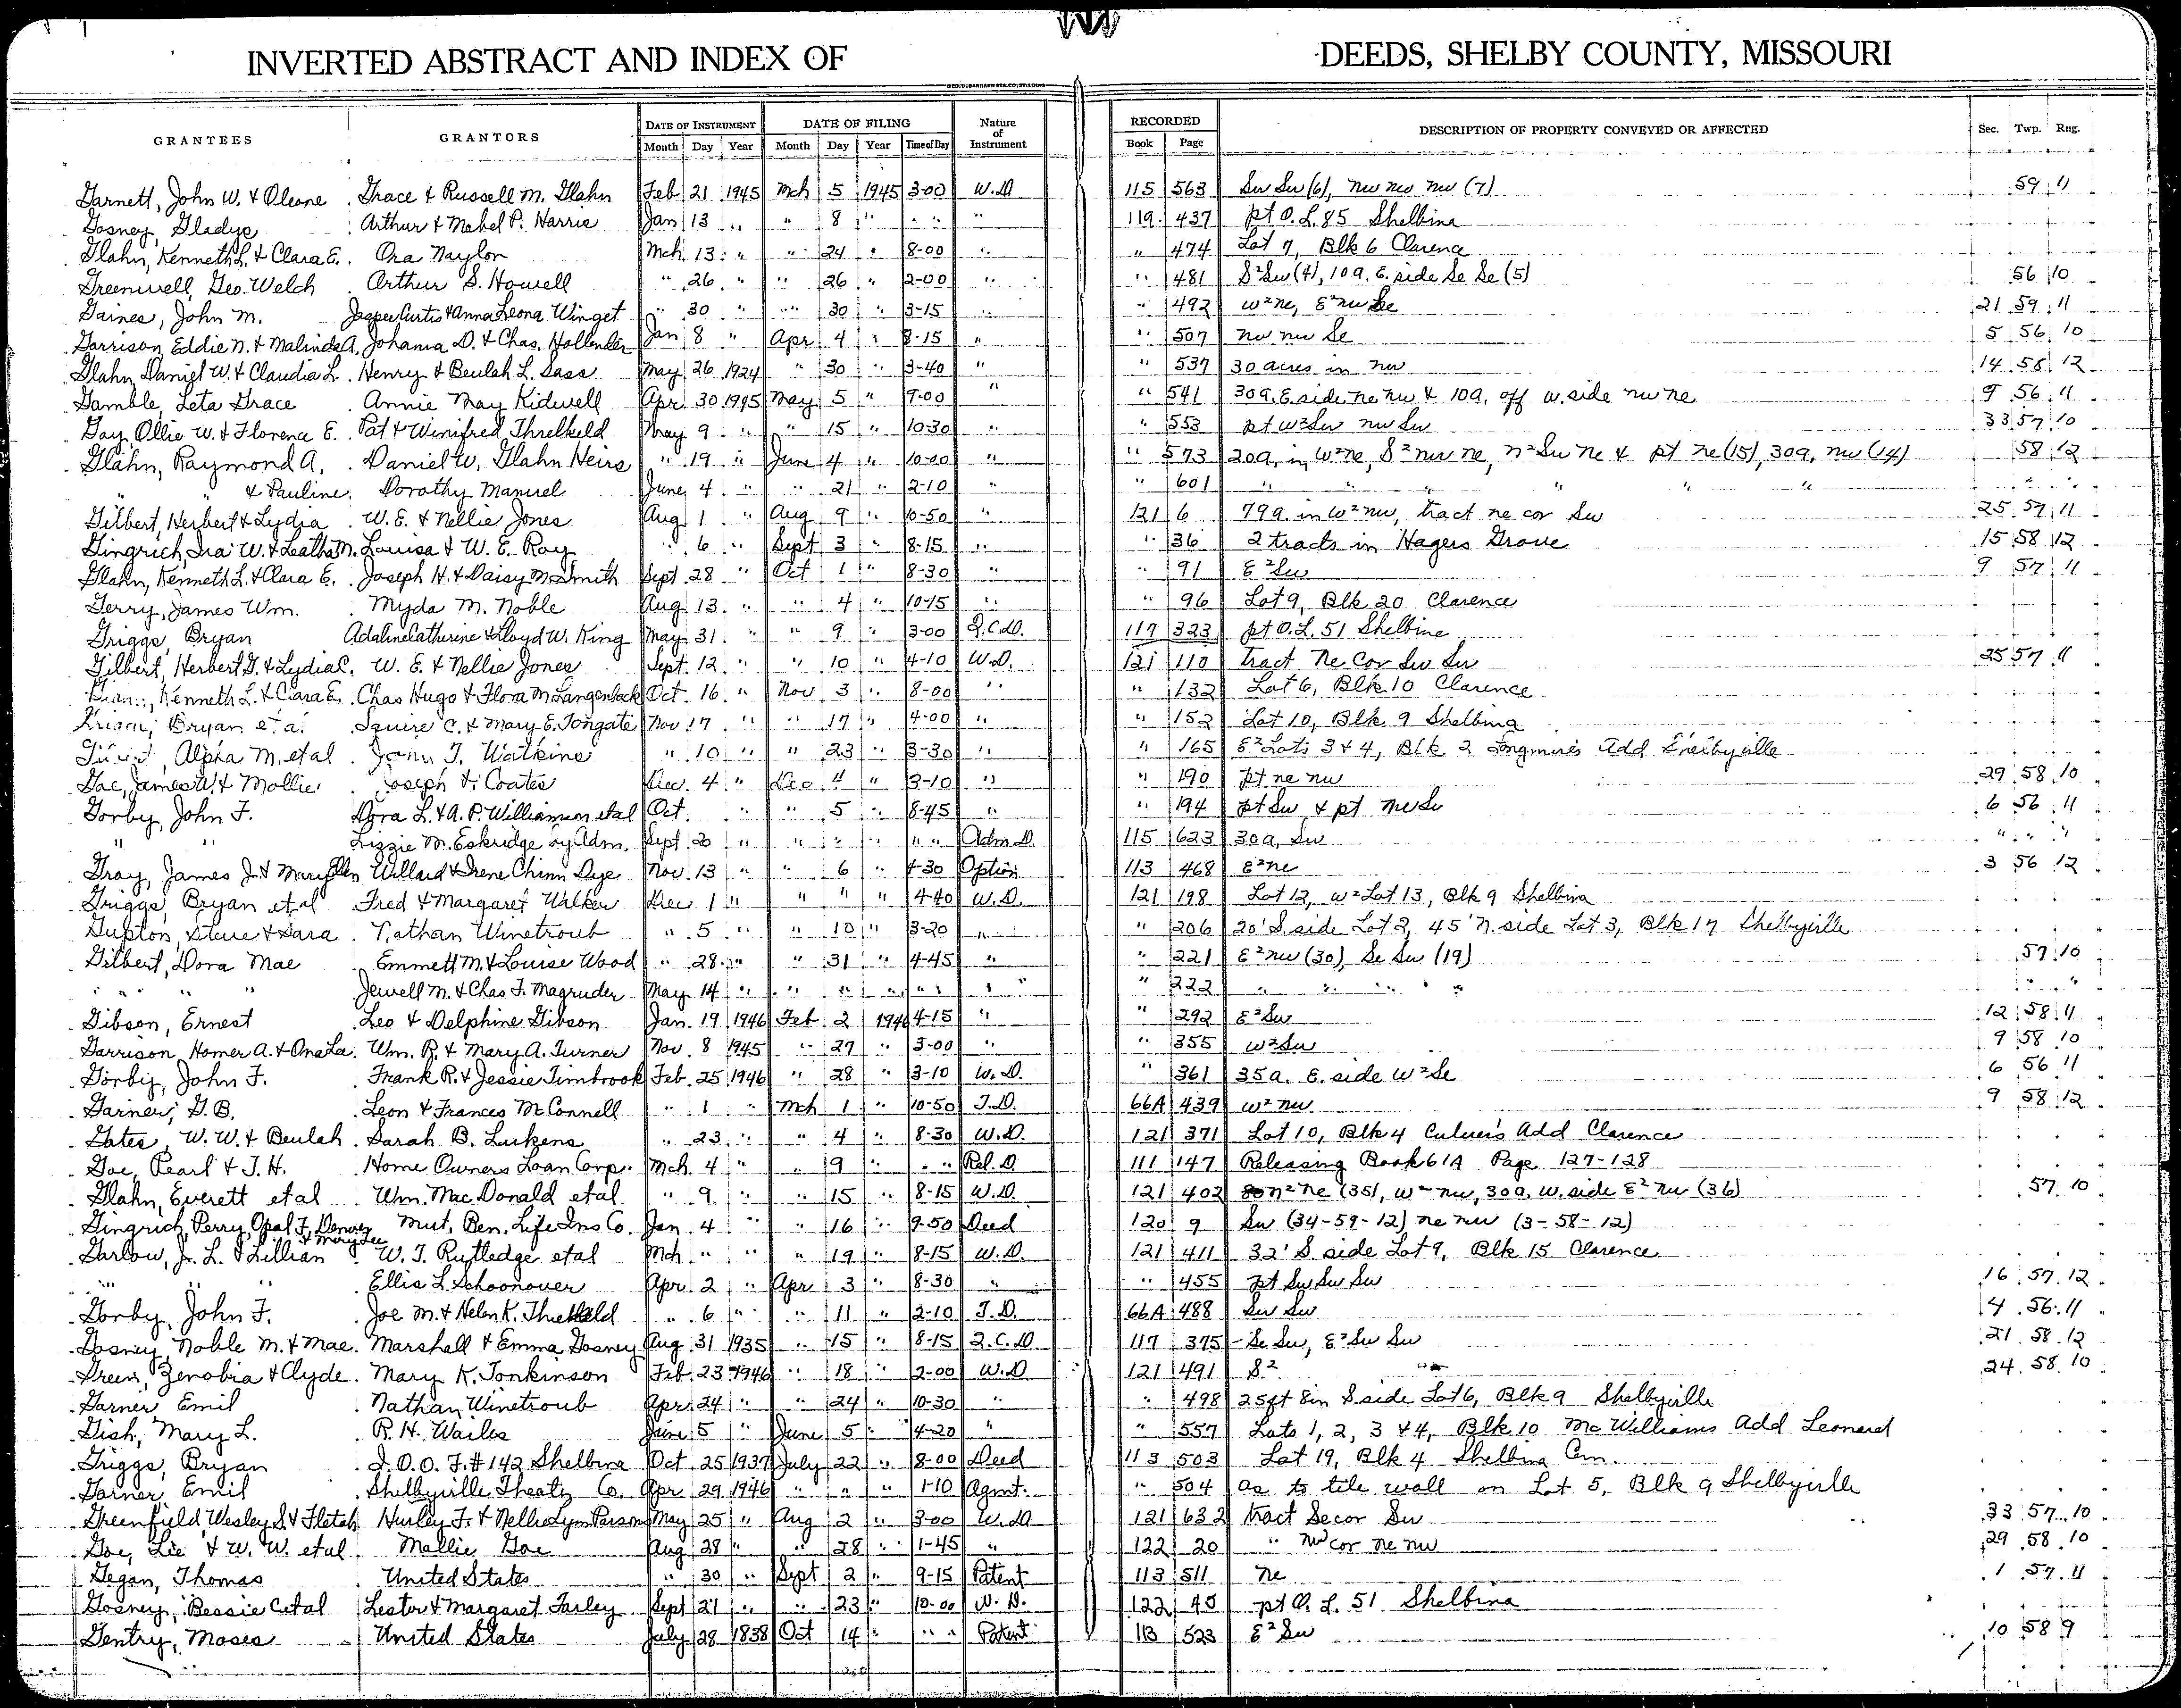 INVERTED ABSTRACT AND INDEX OF DEEDS, SHELBY COUNTY, MISSOURI
GRANTEES GRANTORS DATE OF INSTRUMENT DATE OF FILING Nature of Instrument RECORDED DESCRIPTION OF PROPERTY CONVEYED OR AFFECTED Sec. Twp. Rng.
Month Day Year Month Day Year Time of Day Book Page
Garnett, John W. & Oleone Grace & Russell M. Glahn Feb 21 1945 Mch 5 1945 3-00 W.D 115 563 Sw Sw (6), nw nw nw (7) 59 11
Gosney, Gladys Arthur & Mabel P. Harris Jan 13 " " 8 " " " " 119 437 pt O.L. 85 Shelbina
Glahn, Kenneth L. & Clara E. Ora Naylor Mch 13 " " 24 " 8-00 " " 474 Lot 7, Blk 6 Clarence
Greenwell, Geo. Welch Arthur S. Howell " 26 " " 26 " 2-00 " " 481 S²Sw (4), 10a. E. side Se Se (5) 56 10
Gaines, John M. Jasper Curtis & Anna Leona Winget " 30 " " 30 " 3-15 " " 492 w²ne, E²nw Se 21 59 11
Garrison, Eddie N. & Malinda A. Johanna D. & Chas. Hollender Jan 8 " Apr 4 " 8-15 " " 507 nw nw Se 5 56 10
Glahn, Daniel W. & Claudia L. Henry & Beulah L. Sass May 26 1924 " 30 " 3-40 " " 537 30 acres in nw 14 58 12
Gamble, Leta Grace Annie May Kidwell Apr 30 1945 May 5 " 9-00 " " 541 30a. E. side ne nw & 10a. off w. side nw ne 9 56 11
Gay, Ollie W. & Florence E. Pat & Winifred Threlkeld May 9 " " 15 " 10-30 " " 553 pt w²Sw nw Sw 33 57 10
Glahn, Raymond A. Daniel W. Glahn Heirs " 19 " June 4 " 10-00 " " 573 20a. in W²ne, S²nw ne, n²Sw ne & pt ne (15), 30a. nw (14) 58 12
" " & Pauline Dorothy Manuel June 4 " " 21 " 2-10 " " 601 " " " " " " " "
Gilbert, Herbert & Lydia W. E. & Nellie Jones Aug 1 " Aug 9 " 10-50 " 121 6 79a. in w²nw, tract ne cor Sw 25 57 11
Gingrich, Ira W. & Leatha M. Louisa & W. E. Roy " 6 " Sept 3 " 8-15 " " 36 2 tracts in Hagers Grove 15 58 12
Glahn, Kenneth L. & Clara E. Joseph H. & Daisy M. Smith Sept 28 " Oct 1 " 8-30 " " 91 E²Sw 9 57 11
Gerry, James Wm. Myda M. Noble Aug 13 " " 4 " 10-15 " " 96 Lot 9, Blk 20 Clarence
Griggs, Bryan Adaline Catherine & Lloyd W. King May 31 " " 9 " 3-00 Q.C.D. 117 323 pt O.L. 51 Shelbina
Gilbert, Herbert G. & Lydia C. W. E. & Nellie Jones Sept. 12 " " 10 " 4-10 W.D. 121 110 tract Ne Cor Sw Sw 25 57 11
Kenneth L. & Clara E. Chas Hugo & Flora M Langenback Oct. 16 " Nov 3 " 8-00 " " 132 Lot 6, Blk 10 Clarence
Bryan et al Squire C. & Mary E. Tongate Nov 17 " " 17 " 4-00 " " 152 Lot 10, Blk 9 Shelbina
Alpha M. et al T. Watkins " 10 " " 23 " 3-30 " " 165 E²Lots 3 & 4, Blk 2 Longmires Add Shelbyville
Goe, James W. & Mollie Joseph F. Coates Dec. 4 " Dec 4 " 3-10 " " 190 pt ne nw 29 58 10
Gorby, John F. Dora L. & A. P. Williamson et al Oct. " " 5 " 8-45 " " 194 pt Sw & pt nw Se 6 56 11
" " Lizzie M. Eskridge by Adm. Sept 20 " " " " " " Adm D. 115 623 30a, Sw " " "
Gray, James J. & Mary Ellen Willard & Irene Chinn Dye Nov. 13 " " 6 " 4-30 Option 113 468 E²ne 3 56 12
Griggs, Bryan et al Fred & Margaret Walker Dec 1 " " " " 4-40 W.D. 121 198 Lot 12, w²Lot 13, Blk 9 Shelbina
Gupton, Steve & Sara Nathan Winetroub " 5 " " 10 " 3-20 " " 206 20' S. side Lot 2, 45' N. side Lot 3, Blk 17 Shelbyville
Gilbert, Dora Mae Emmett M. & Louise Wood " 28 " " 31 " 4-45 " " 221 E²nw (30) Se Sw (19) 57 10
" " " Jewell M. & Chas F. Magruder May 14 " " " " " " " " 222 " " " " " " "
Gibson, Ernest Leo & Delphine Gibson Jan. 19 1946 Feb 2 1946 4-15 " " 292 E²Sw 12 58 11
Garrison, Homer A. & Ona Lee Wm. R. & Mary A. Turner Nov. 8 1945 " 27 " 3-00 " " 355 w²Sw 9 58 10
Gorby, John F. Frank R. & Jessie Timbrook Feb 25 1946 " 28 " 3-10 W.D. " 361 35a. E. side W²Se 6 56 11
Garner, G. B. Leon & Frances McConnell " 1 " Mch 1 " 10-50 T.D. 66A 439 w²nw 9 58 12
Gates, W. W. & Beulah Sarah B. Lukens " 23 " " 4 " 8-30 W.D. 121 371 Lot 10, Blk 4 Culver's Add Clarence
Goe, Pearl & T. H. Home Owners Loan Corp. Mch. 4 " " 9 " " " Rel. D. 111 147 Releasing Book 61A Page 127-128
Glahn, Everett et al Wm. MacDonald et al " 9 " " 15 " 8-15 W.D. 121 402 n²ne (35), w²nw, 30a. w. side E²nw (36) 57 10
Gingrich, Perry, Opal F, Denver & Mary Lee Mut. Ben. Life Ins Co. Jan. 4 " " 16 " 9-50 Deed 120 9 Sw (34-59-12) ne nw (3-58-12)
Garlow, Jr. L. & Lillian W. T. Rutledge et al Mch " " " 19 " 8-15 W.D. 121 411 32' S. side Lot 9, Blk 15 Clarence
" " " Ellis L. Schoonover Apr 2 " Apr 3 " 8-30 " " 455 pt Sw Sw Sw 16 57 12
Gorby, John F. Joe M. & Helen K. Threlkeld " 6 " " 11 " 2-10 T.D. 66A 488 Sw Sw 4 56 11
Gosney, Noble M. & Mae Marshall & Emma Gosney Aug 31 1935 " 15 " 8-15 Q.C.D 117 375 Se Sw, E²Sw Sw 21 58 12
Green, Zenobia & Clyde Mary K. Tonkinson Feb 23 1946 " 18 " 2-00 W.D 121 491 S² 24 58 10
Garner Emil Nathan Winetroub Apr 24 " " 24 " 10-30 " " 498 25ft 8in S. side Lot 6, Blk 9 Shelbyville
Gish, Mary L. R. H. Wailes June 5 " June 5 " 4-20 " " 557 Lots 1, 2, 3 & 4, Blk 10 McWilliams Add Leonard
Griggs, Bryan I.O.O.F. #142 Shelbina Oct 25 1937 July 22 " 8-00 Deed 113 503 Lot 19, Blk 4 Shelbina Cem.
Garner, Emil Shelbyville Theatre Co. Apr 29 1946 " " " 1-10 Agmt. " 504 as to tile wall on Lot 5, Blk 9 Shelbyville
Greenfield, Wesley S. & Fletch Hurley F. & Nellie Lynn Parson May 25 " Aug 2 " 3-00 W.D 121 632 tract Se cor Sw 33 57 10
Goe, Lee & W. W. et al Mollie Goe Aug 28 " " 28 " 1-45 " 122 20 " nw cor ne nw 29 58 10
Gegan, Thomas United States " 30 " Sept 2 " 9-15 Patent 113 511 ne 1 57 11
Gosney, Bessie C et al Lester & Margaret Farley Sept 21 " " 23 " 10-00 W.D. 122 45 pt O.L. 51 Shelbina
Gentry, Moses United States July 28 1838 Oct 14 " " " Patent 113 523 E²Sw 10 58 9